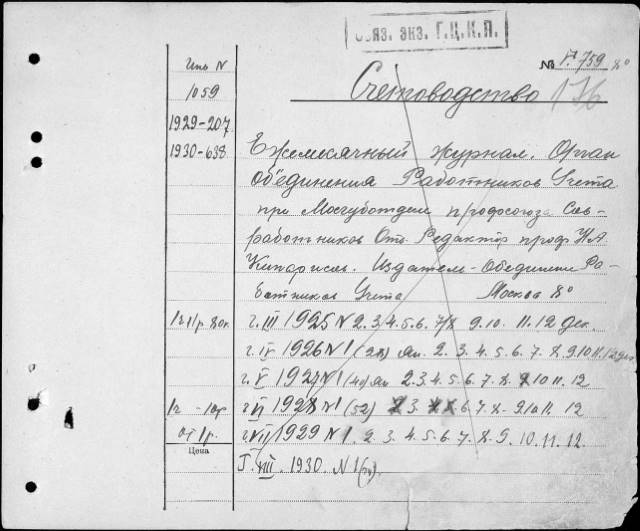 Обяз. экз. Г.Ц.К.П.
№ 759 8°
Счетоводство 176
Инв N
1059
1929-207
1930-638
Ежемесячный журнал. Орган
объединения Работников Учета
при Мосгуботдел профсоюза Сов-
работников Отв. Редактор проф Н.А.
Кипарисов. Издатель-Объединии Ра-
ботников Учета Москва 8°
г. III 1925 N 2. 3. 4. 5. 6. 7/8 9. 10. 11. 12 дек.
г. IV 1926 N 1 (28) Ян. 2. 3. 4. 5. 6. 7. 8. 9. 10. 11. 12 дек
г. V 1927 N 1 (40) Ян 2. 3. 4. 5. 6. 7. 8. 9 10 11. 12
г VI 1928 N 1 (52) 2 3. 6. 7. 8. 9 10 11. 12
г. VII 1929 N 1. 2. 3. 4. 5. 6. 7. 8. 9. 10. 11. 12.
Г. VIII. 1930. N 1
Цена